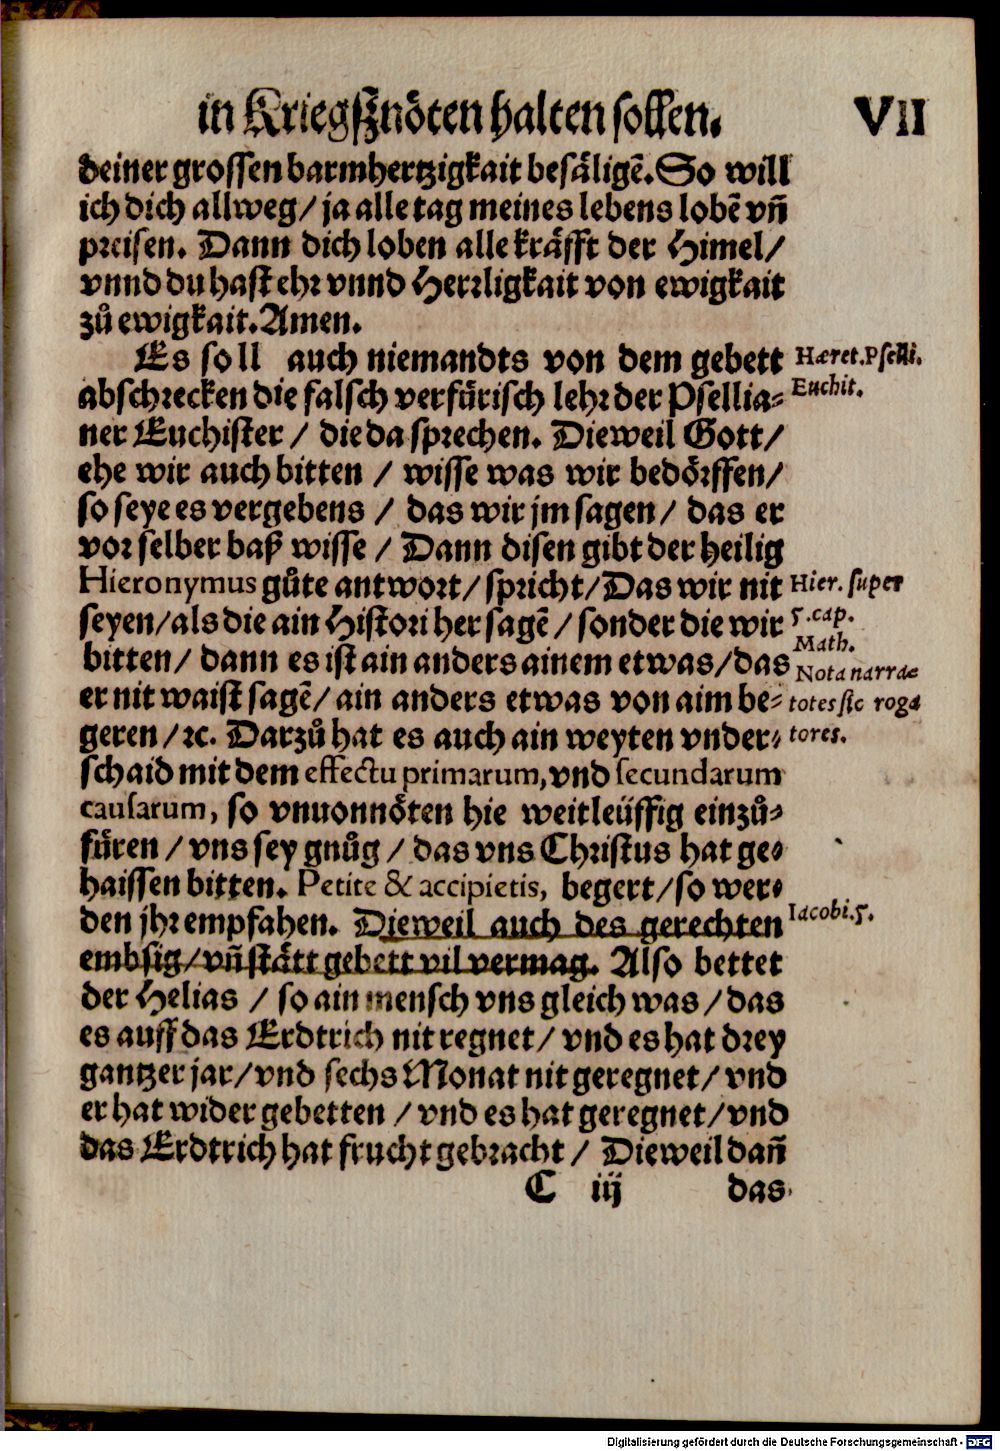 in Kriegsznöten halten sollen. VII
deiner grossen barmhertzigkait besäligē. So will
ich dich allweg / ja alle tag meines lebens lobē vñ
preisen. Dann dich loben alle kräfft der Himel /
vnnd du hast ehr vnnd Herrligkait von ewigkait
zů ewigkait. Amen.
Es soll auch niemandts von dem gebett
Hæret. Pselli.
abschrecken die falsch verfürisch lehr der Psellia-
Euchit.
ner Euchister / die da sprechen. Dieweil Gott /
ehe wir auch bitten / wisse was wir bedörffen /
so seye es vergebens / das wir jm sagen / das er
vor selber baß wisse / Dann disen gibt der heilig
Hieronymus gůte antwort / spricht / Das wir nit
Hier. super
seyen / als die ain Histori her sagē / sonder die wir
5. cap.
Math.
bitten / dann es ist ain anders ainem etwas / das
Nota narra
er nit waist sagē / ain anders etwas von aim be-
totes sic roga
geren / ꝛc. Darzů hat es auch ain weyten vnder-
tores.
schaid mit dem effectu primarum, vnd secundarum
causarum, so vnuonnöten hie weitleüffig einzů-
füren / vns sey gnůg / das vns Christus hat ge-
haissen bitten. Petite & accipietis, begert / so wer-
den jhr empfahen. Dieweil auch des gerechten
Iacobi. 5.
embsig / vñ stätt gebett vil vermag. Also bettet
der Helias / so ain mensch vns gleich was / das
es auff das Erdtrich nit regnet / vnd es hat drey
gantzer jar / vnd sechs Monat nit geregnet / vnd
er hat wider gebetten / vnd es hat geregnet / vnd
das Erdtrich hat frucht gebracht / Dieweil dañ
C iij das
Digitalisierung gefördert durch die Deutsche Forschungsgemeinschaft - DFG